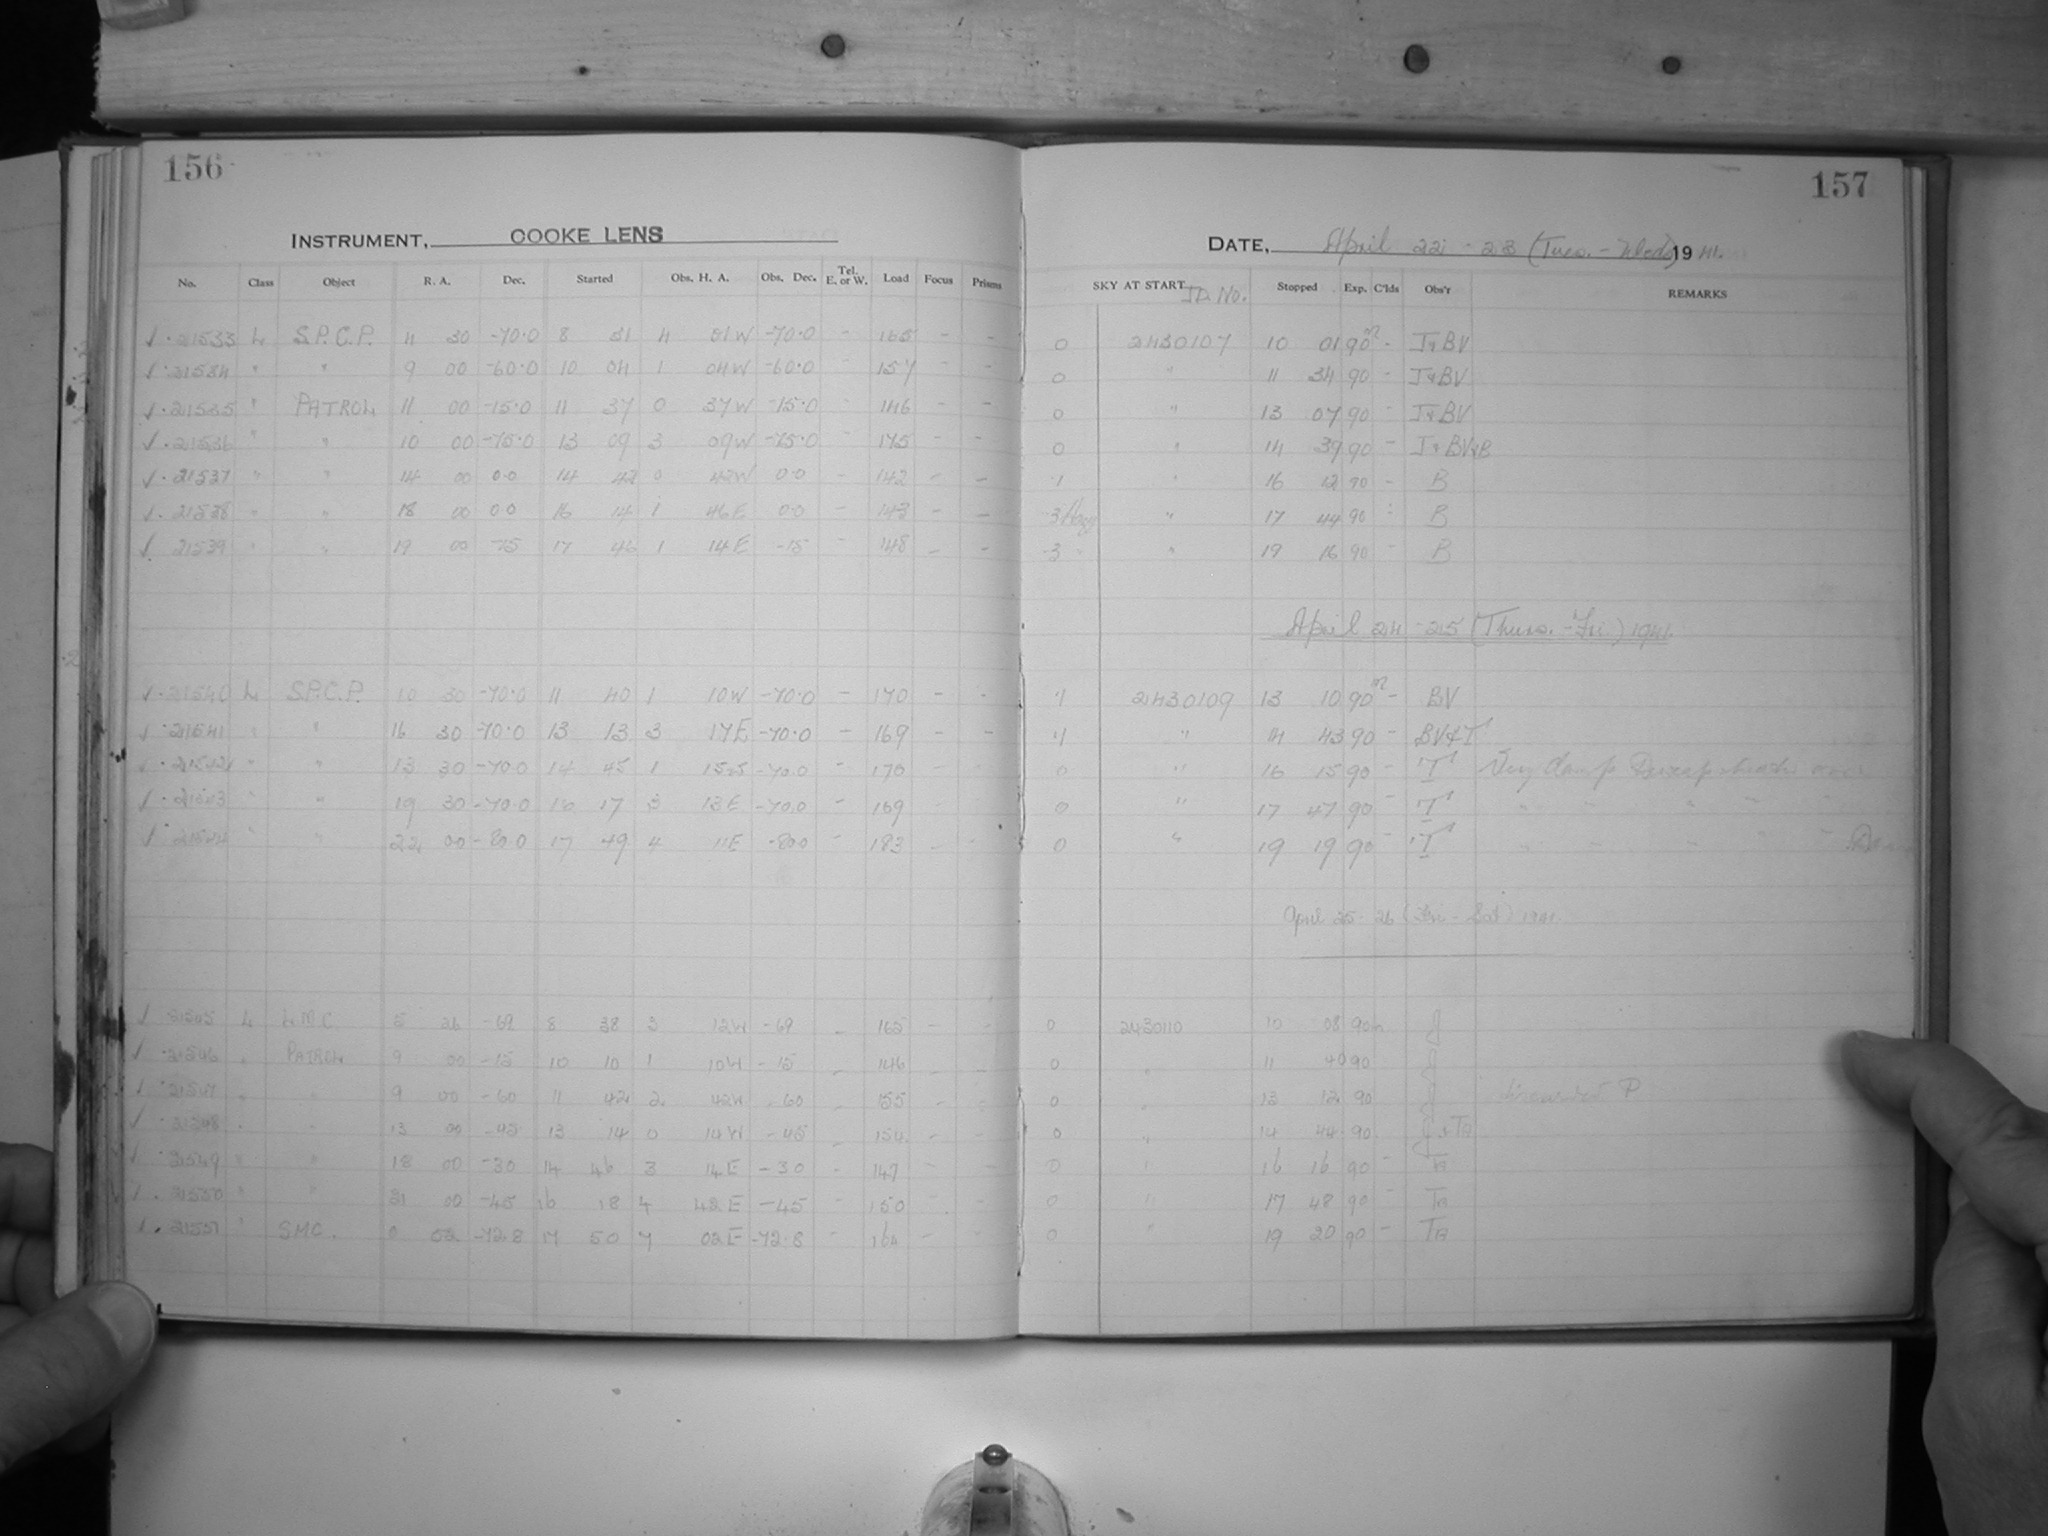 156
157
INSTRUMENT, COOKE LENS
DATE, April 22 - 23 (Tues. - Weds) 1941.
No. Class Object R. A. Dec. Started Obs. H. A. Obs. Dec. Tel. E. or W. Load Focus Prisms SKY AT START J.D. No. Stopped Exp. C'lds Obs'r REMARKS
√ · 21533 L S.P.C.P. 11 30 -70.0 8 31 4 01W -70.0 - 165 - - 0 2430107 10 01 90m - J&BV
√ · 21534 " " 9 00 -60.0 10 04 1 04W -60.0 - 157 - - 0 " 11 34 90 - J&BV
√ · 21535 " PATROL 11 00 -15.0 11 37 0 37W -15.0 - 146 - - 0 " 13 07 90 - J&BV
√ · 21536 " " 10 00 -75.0 13 09 3 09W -75.0 - 175 - - 0 " 14 39 90 - J&BV&B
√ · 21537 " " 14 00 0.0 14 42 0 42W 0.0 - 142 - - 1 " 16 12 90 - B
√ · 21538 " " 18 00 0.0 16 14 1 46E 0.0 - 143 - - 3 Hazy " 17 44 90 - B
√ · 21539 " " 19 00 -15 17 46 1 14E -15 - 148 - - 3 " " 19 16 90 - B
April 24 - 25 (Thurs. - Fri.) 1941.
√ · 21540 L S.P.C.P. 10 30 -70.0 11 40 1 10W -70.0 - 170 - - 1 2430109 13 10 90m - BV
√ · 21541 " " 16 30 -70.0 13 13 3 17E -70.0 - 169 - - 1 " 14 43 90 - BV&T
√ · 21542 " " 13 30 -70.0 14 45 1 15 -70.0 - 170 0 " 16 15 90 - T Very damp
√ · 21543 " " 19 30 -70.0 16 17 3 13E -70.0 - 169 0 " 17 47 90 - T " " " "
√ · 21544 " " 22 00 -80.0 17 49 4 11E -80.0 - 183 - - 0 " 19 19 90 - T " " " "
April 25 - 26 (Fri - Sat) 1941
√ 21545 L L.M.C. 5 26 -69 8 38 3 12W -69 - 165 - - 0 2430110 10 08 90m J
√ · 21546 " PATROL 9 00 -15 10 10 1 10W -15 - 146 - - 0 " 11 40 90 J
√ · 21547 " " 9 00 -60 11 42 2 42W -60 - 155 - - 0 " 13 12 90 J
√ · 21548 " " 13 00 -45 13 14 0 14W -45 - 154 - - 0 " 14 44 90 J&TB
√ · 21549 " " 18 00 -30 14 46 3 14E -30 - 147 - - 0 " 16 16 90 - TB
√ · 21550 " " 21 00 -45 16 18 4 42E -45 - 150 - - 0 " 17 48 90 - TB
√ · 21551 " SMC. 0 52 -72.8 17 50 7 02E -72.8 - 164 - - 0 " 19 20 90 - TB